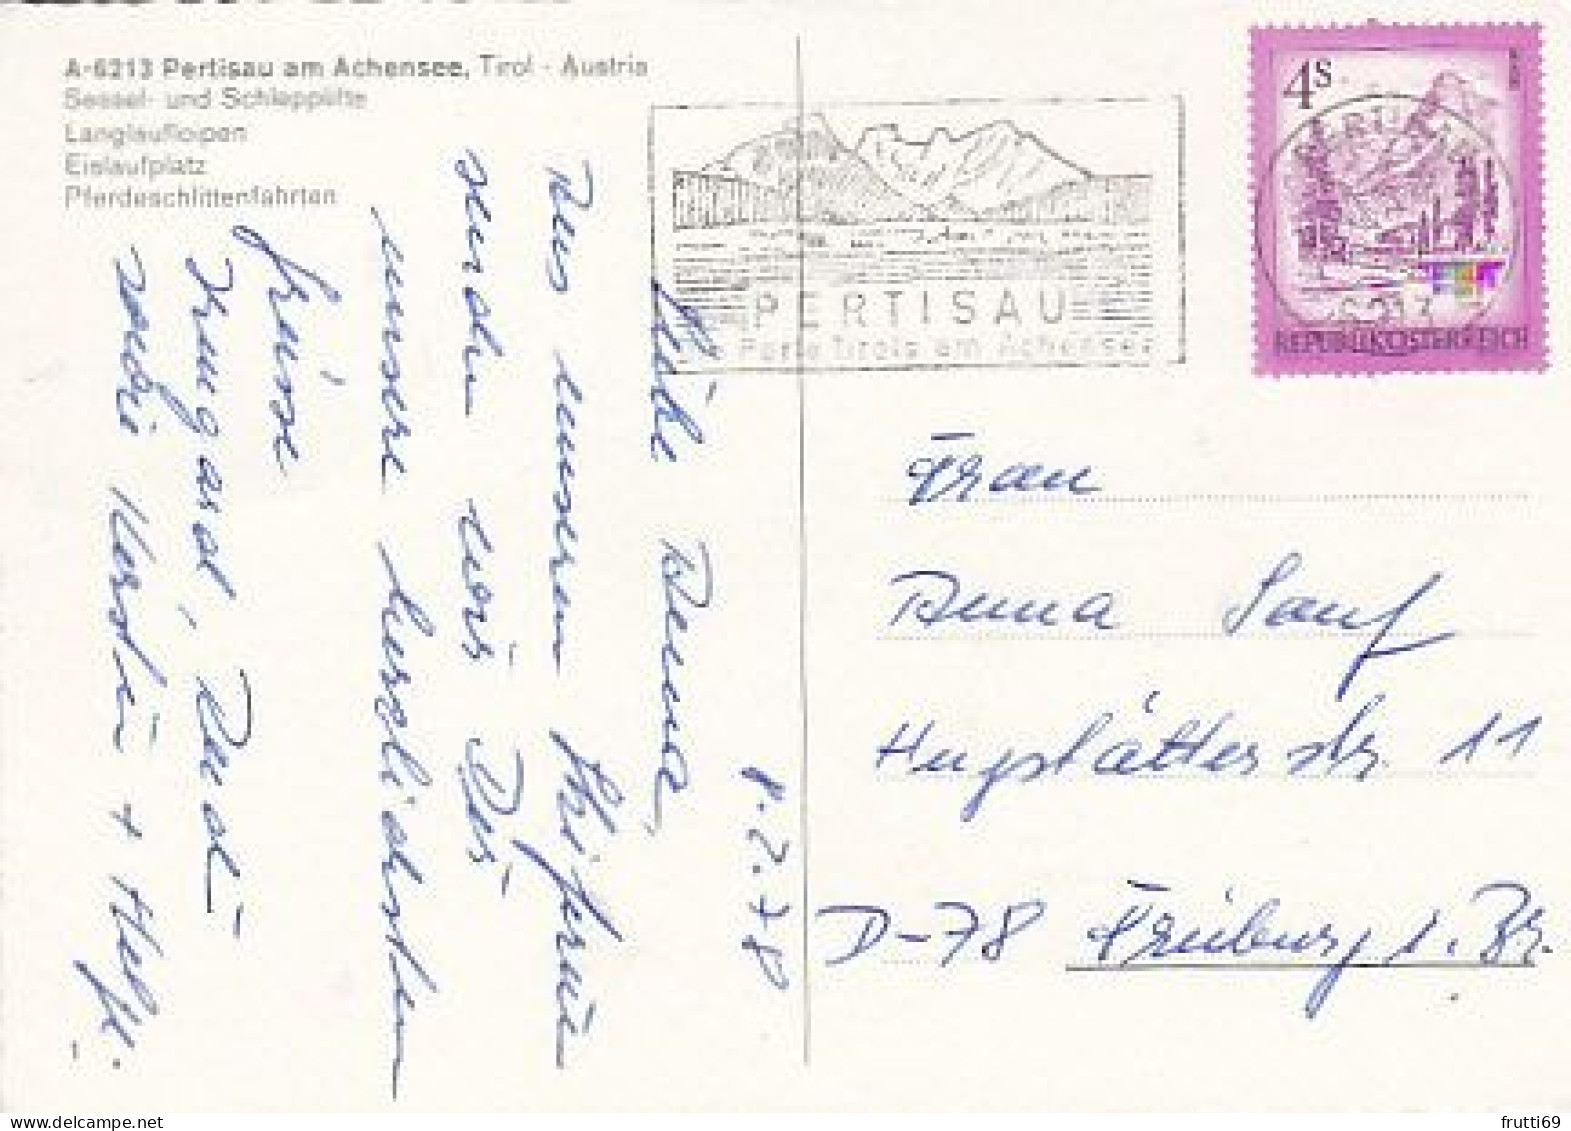 A-6213 Pertisau am Achensee, Tirol - Austria
Sessel- und Schlepplifte
Langlaufloipen
Eislaufplatz
Pferdeschlittenfahrten
4S
PERTISAU
6213
REPUBLIK ÖSTERREICH
PERTISAU
Perle Tirols am Achensee
1.2.78
Liebe Anna
Aus unserem Skiferien
senden wir Dir
unsere herzlichsten
Grüsse
Irmgard, Rudi
sowie Kerstin + Helg.
Frau
Anna Sauf
Hugstätterstr. 11
D-78 Freiburg i. Br.
1
frutti69